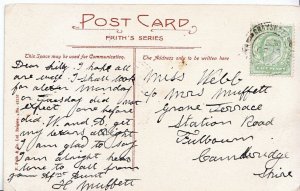 POST CARD
FRITH'S SERIES
This Space may be used for Communication.
The Address only to be written here
Dear Lily I hope all
are well I shall look
for Monday
or Tuesday did not
expect did
W and D. get
home alright
I am glad to say
I am alright here
love to all from
your Aunt
H Muffett
Miss Webb
c/o Mrs Muffett
Grove Terrace
Station Road
Fulbourn
Cambridge
Shire